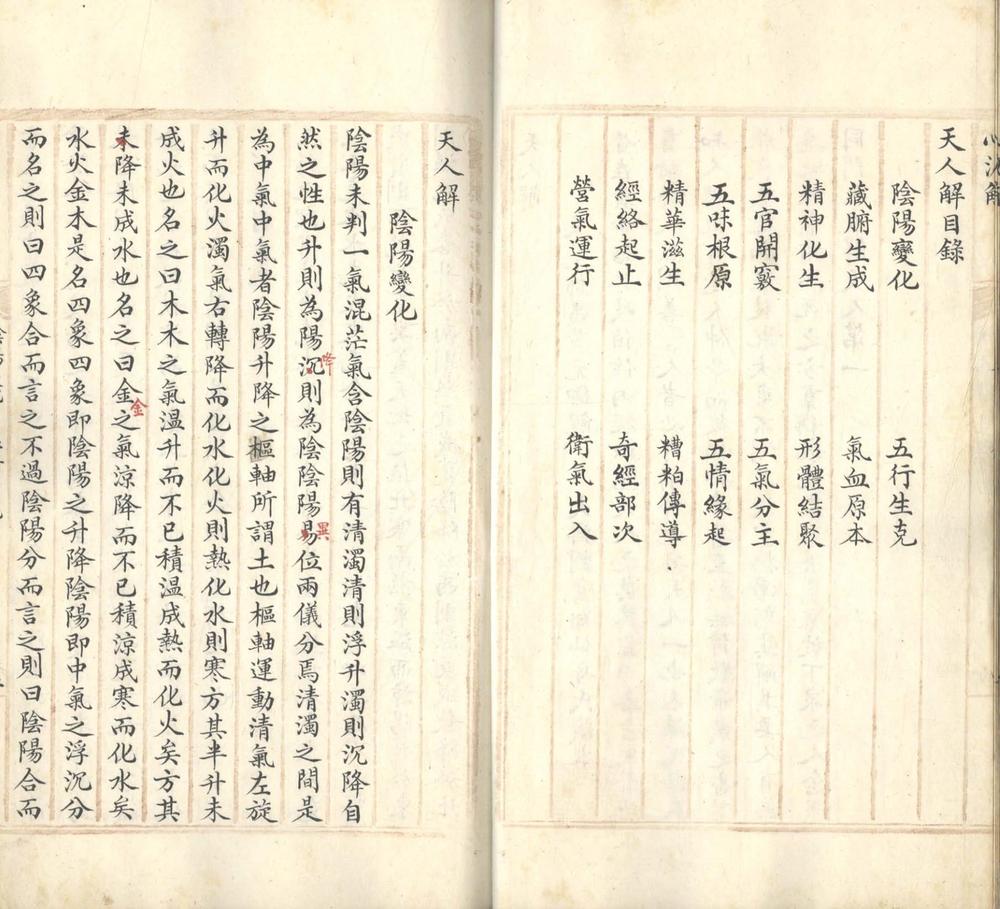 天人解目錄
陰陽變化 五行生克
藏腑生成 氣血原本
精神化生 形體結聚
五官開竅 五氣分主
五味根原 五情緣起
精華滋生 糟粕傳導
經絡起止 奇經部次
營氣運行 衛氣出入
天人解
陰陽變化
陰陽未判一氣混茫氣含陰陽則有清濁清則浮升濁則沉降自
然之性也升則為陽沉則為陰陰陽易位兩儀分焉清濁之間是
降
異
為中氣中氣者陰陽升降之樞軸所謂土也樞軸運動清氣左旋
升而化火濁氣右轉降而化水化火則熱化水則寒方其半升未
成火也名之曰木木之氣溫升而不已積溫成熱而化火矣方其
未降未成水也名之曰金之氣涼降而不已積涼成寒而化水矣
金
水火金木是名四象四象即陰陽之升降陰陽即中氣之浮沉分
而名之則曰四象合而言之不過陰陽分而言之則曰陰陽合而